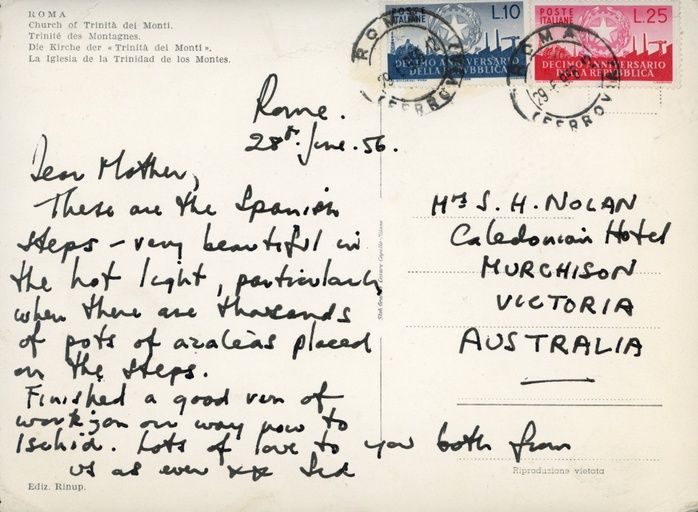 ROMA
Church of Trinità dei Monti.
Trinité des Montagnes.
Die Kirche der « Trinità dei Monti ».
La Iglesia de la Trinidad de los Montes.
POSTE ITALIANE L.10
DECIMO ANNIVERSARIO
DELLA REPVBBLICA
POSTE ITALIANE L.25
DECIMO ANNIVERSARIO
DELLA REPVBBLICA
ROMA
(FERROVIA)
ROMA
(FERROVIA)
Rome.
28th June. 56.
Dear Mother,
These are the Spanish
steps – very beautiful in
the hot light, particularly
when there are thousands
of pots of azaleas placed
on the steps.
Finished a good run of
work & on our way now to
Ischia. Lots of love to you both from
us as ever xx Sid
Mrs S. H. NOLAN
Caledonian Hotel
MURCHISON
VICTORIA
AUSTRALIA
Ediz. Rinup.
Riproduzione vietata